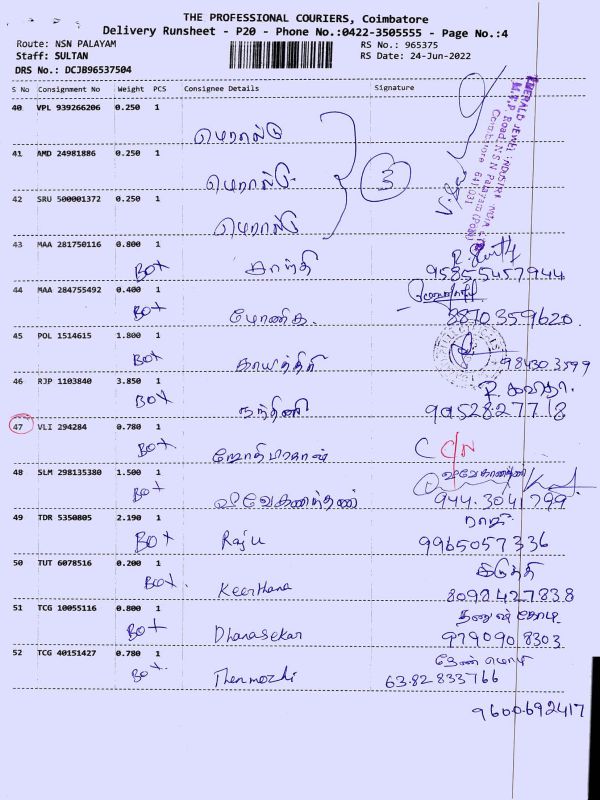 THE PROFESSIONAL COURIERS, Coimbatore
Delivery Runsheet - P20 - Phone No.:0422-3505555 - Page No.:4
Route: NSN PALAYAM RS No.: 965375
Staff: SULTAN RS Date: 24-Jun-2022
DRS No.: DCJB96537504
S No Consignment No Weight PCS Consignee Details Signature
40 VPL 939266206 0.250 1
41 AMD 24981886 0.250 1
42 SRU 500001372 0.250 1
3
43 MAA 281750116 0.800 1
BOX காந்தி 95855457944
44 MAA 284755492 0.400 1
BOX மோனிகா. 8870359620
45 POL 1514615 1.800 1
BOX காயத்திரி 984303599
46 RJP 1103840 3.850 1
BOX நந்தினி
47 VLI 294284 0.780 1
BOX C C/N
48 SLM 298135380 1.500 1
BOX 944.3041799
49 TDR 5350805 2.190 1 ராஜு
BOX Raju 9965057336
50 TUT 6078516 0.200 1
BOX. Keerthana 8098427838
51 TCG 10055116 0.800 1
BOX Dhanasekar 9790908303
52 TCG 40151427 0.780 1 தேன் மொழி
BOX. Thenmozhi 63.82833766
9600692417